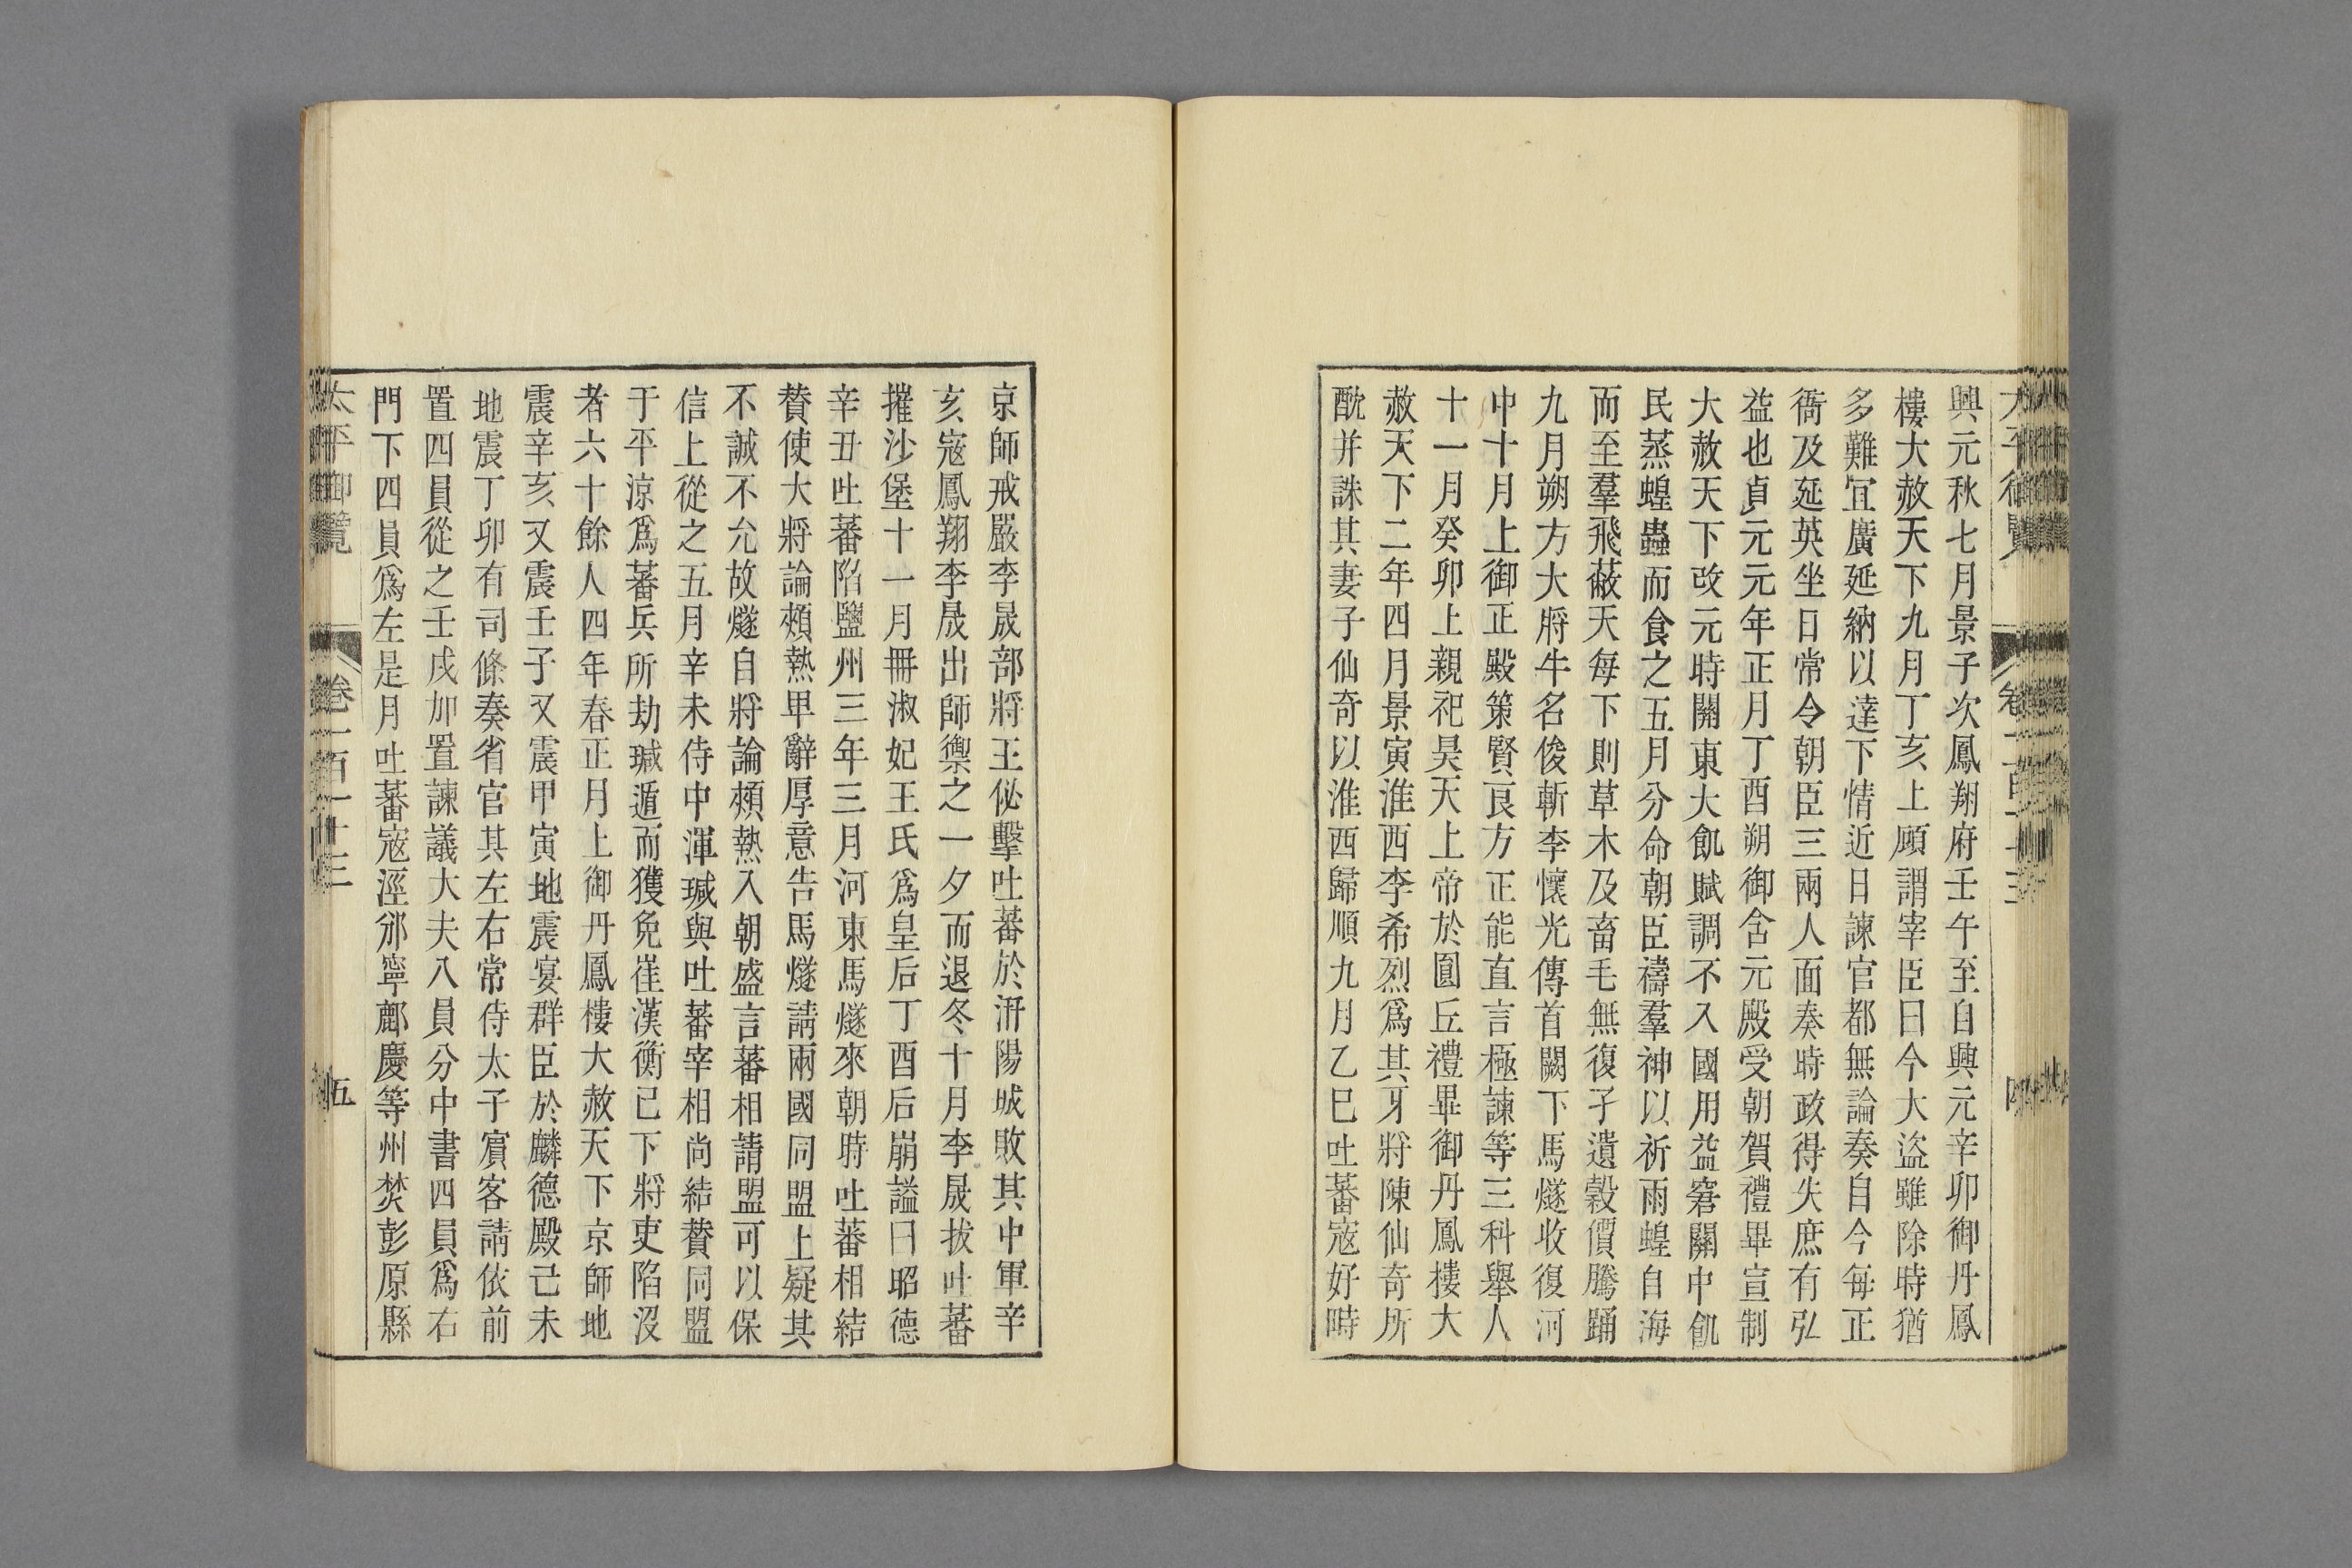 興元秋七月景子次鳳翔府壬午至自興元辛卯御丹鳳
樓大赦天下九月丁亥上顧謂宰臣曰今大盜雖除時猶
多難宜廣延納以達下情近日諫官都無論奏自今每正
衙及延英坐日常令朝臣三兩人面奏時政得失庶有弘
益也貞元元年正月丁酉朔御含元殿受朝賀禮畢宣制
大赦天下改元時關東大飢賦調不入國用益窘關中飢
民蒸蝗蟲而食之五月分命朝臣禱羣神以祈雨蝗自海
而至羣飛蔽天每下則草木及畜毛無復孑遺穀價騰踊
九月朔方大將牛名俊斬李懷光傳首闕下馬燧收復河
中十月上御正殿策賢良方正能直言極諫等三科舉人
十一月癸卯上親祀昊天上帝於圓丘禮畢御丹鳳樓大
赦天下二年四月景寅淮西李希烈爲其牙將陳仙奇所
酖并誅其妻子仙奇以淮西歸順九月乙巳吐蕃寇好時
京師戒嚴李晟部將王佖擊吐蕃於汧陽城敗其中軍辛
亥寇鳳翔李晟出師禦之一夕而退冬十月李晟拔吐蕃
摧沙堡十一月冊淑妃王氏爲皇后丁酉后崩謚曰昭德
辛丑吐蕃陷鹽州三年三月河東馬燧來朝時吐蕃相結
贊使大將論頰熱卑辭厚意告馬燧請兩國同盟上疑其
不誠不允故燧自將論頰熱入朝盛言蕃相請盟可以保
信上從之五月辛未侍中渾瑊與吐蕃宰相尚結贊同盟
于平涼爲蕃兵所劫瑊遁而獲免崔漢衡已下將吏陷沒
者六十餘人四年春正月上御丹鳳樓大赦天下京師地
震辛亥又震壬子又震甲寅地震宴群臣於麟德殿己未
地震丁卯有司條奏省官其左右常侍太子賓客請依前
置四員從之壬戌加置諫議大夫八員分中書四員爲右
門下四員爲左是月吐蕃寇涇邠寧鄜慶等州焚彭原縣
太平御覽 卷一百一十三 五